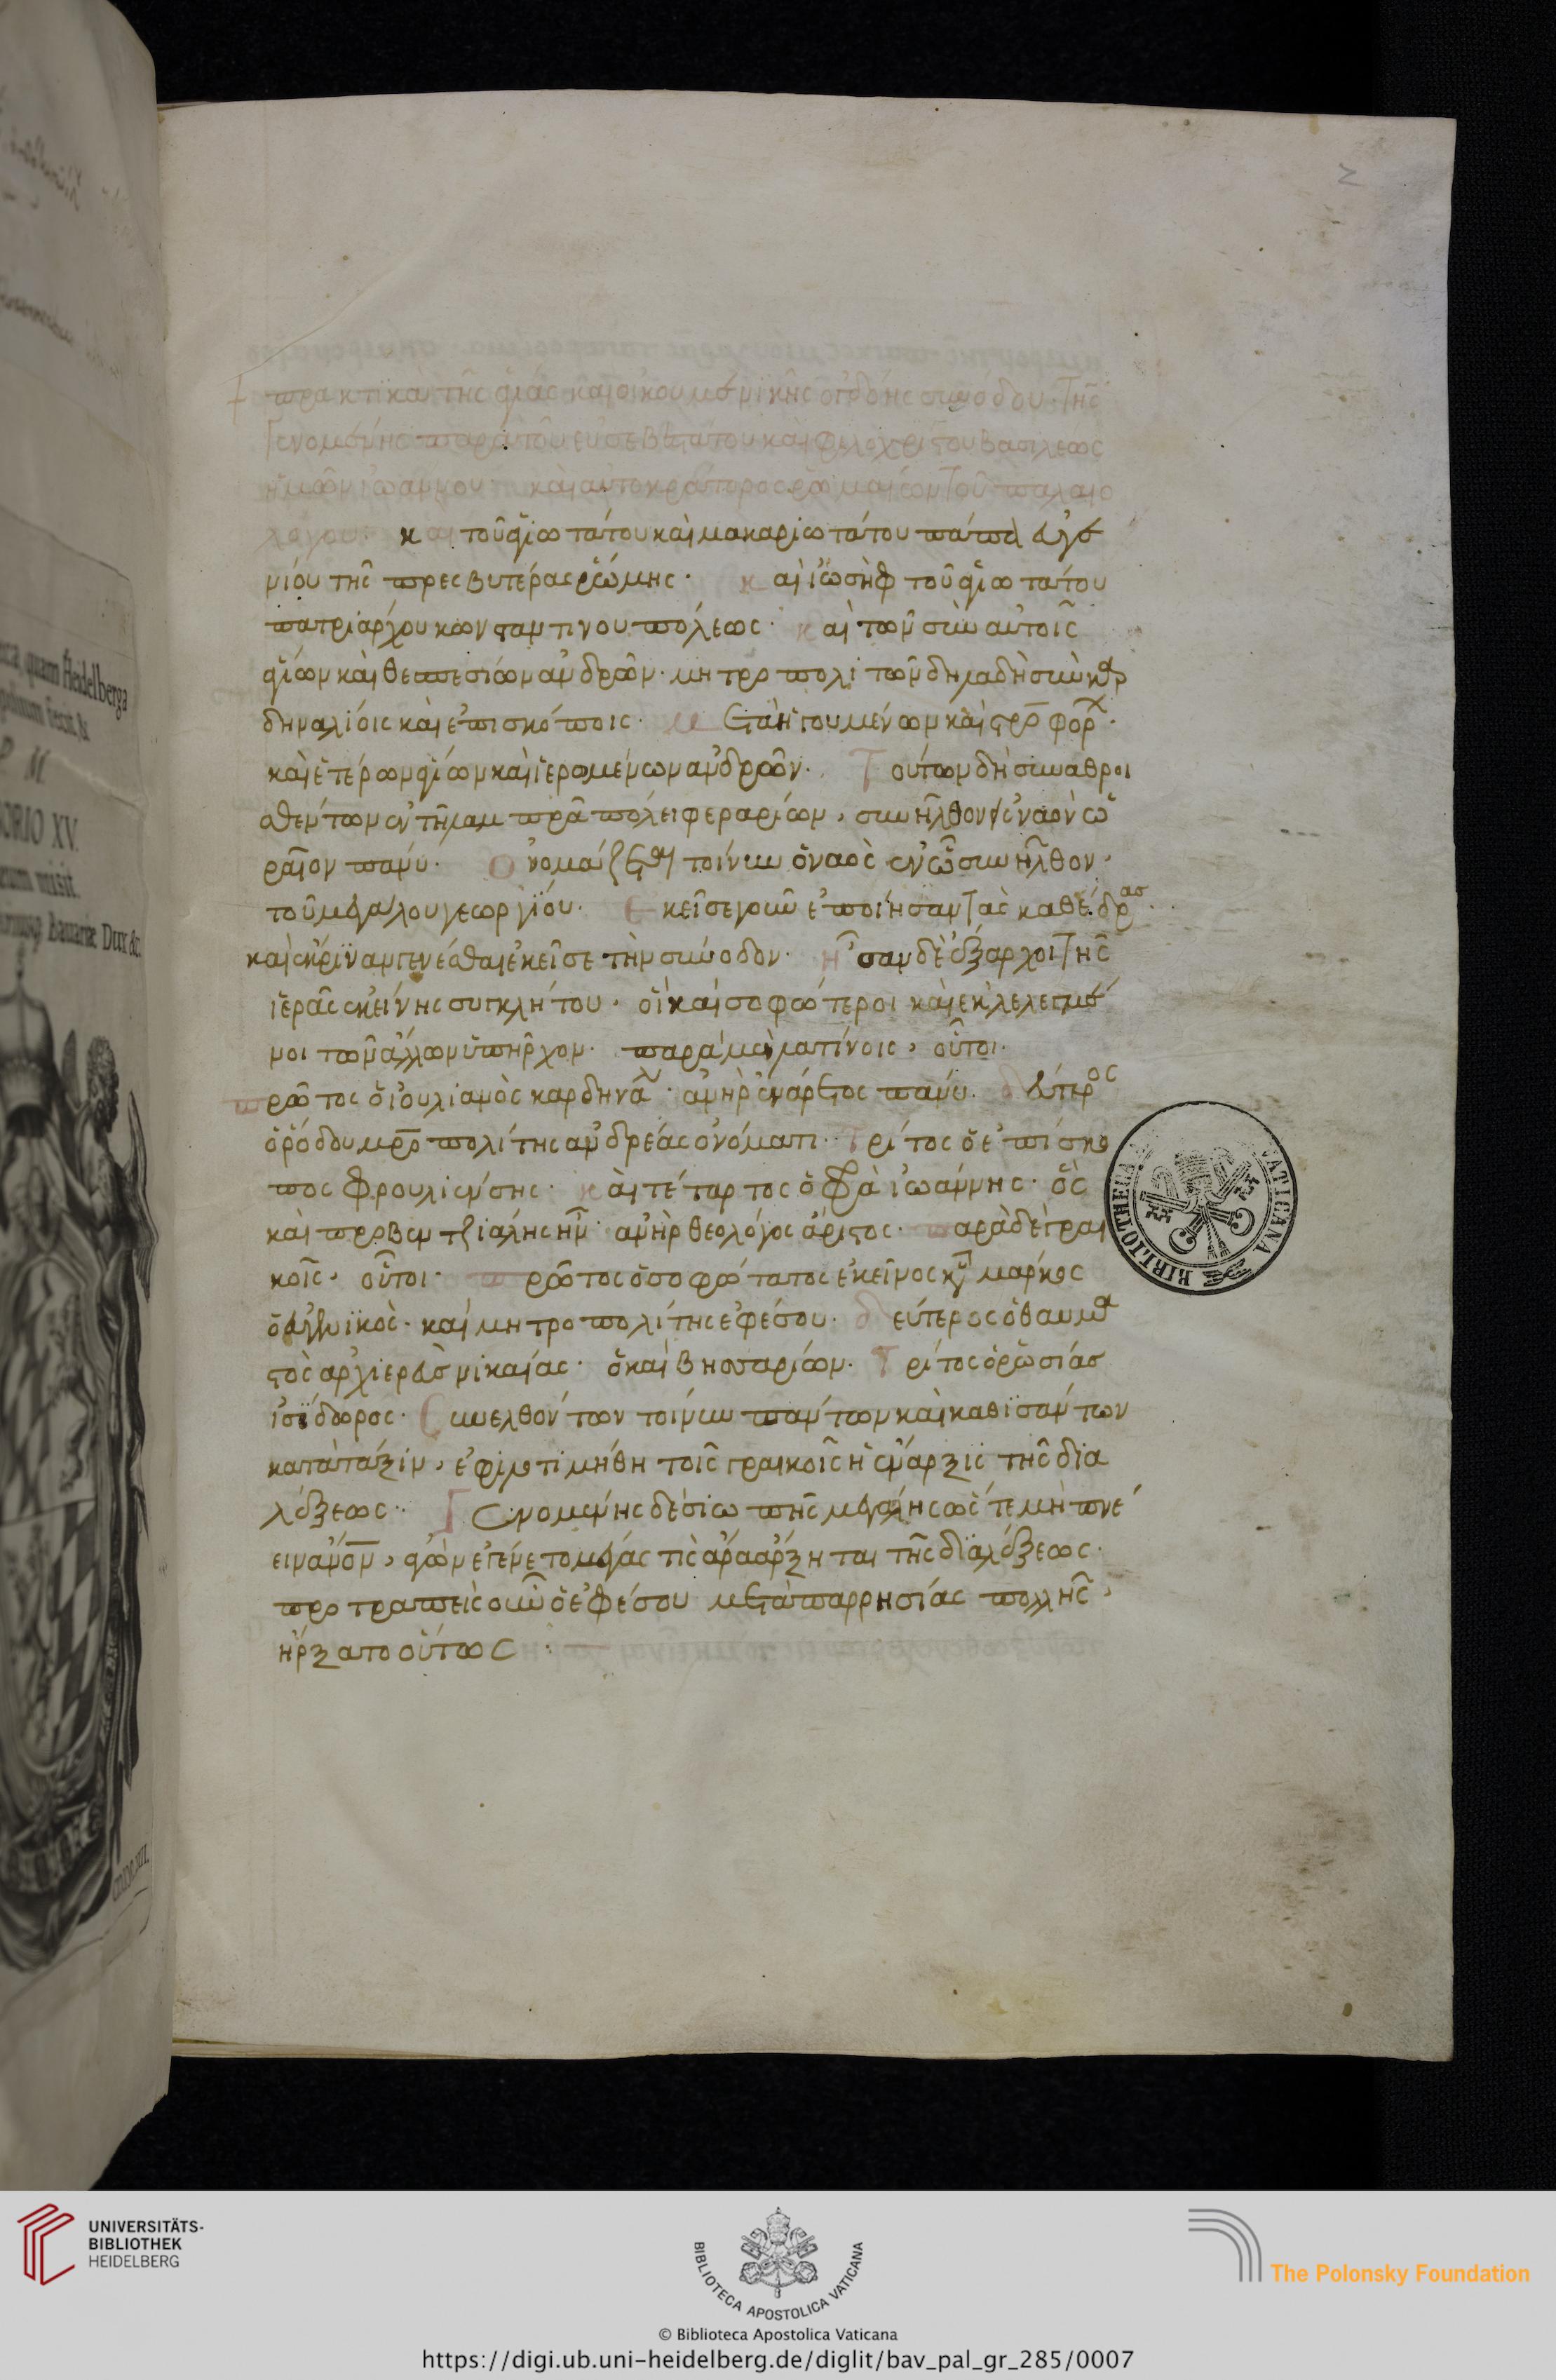 πρακτικὰ τῆς ἁγίας καὶ οἰκουμενικῆς ὀγδόης συνόδου. τῆς
γενομένης παρὰ τοῦ εὐσεβεστάτου καὶ φιλοχρίστου βασιλέως
ἡμῶν ἰωάννου καὶ αὐτοκράτορος ῥωμαίων τοῦ παλαιο
λόγου. καὶ τοῦ ἁγιωτάτου καὶ μακαριωτάτου πάππα εὐγε
νίου τῆς πρεσβυτέρας ῥώμης. καὶ ἰωσὴφ τοῦ ἁγιωτάτου
πατριάρχου κωνσταντινουπόλεως. καὶ τῶν σὺν αὐτοῖς
ἁγίων καὶ θεσπεσίων ἀνδρῶν. μητροπολιτῶν δηλαδὴ σὺν καρ
δηναλίοις καὶ ἐπισκόποις. μετὰ ἡγουμένων καὶ στροφορ
καὶ ἑτέρων ἁγίων καὶ ἱερωμένων ἀνδρῶν. Τούτων δὴ συναθροι
σθέντων ἐν τῇ λαμπρᾷ πόλει φεραρίων, συνῆλθον ἐν ναὸν ὡ
ραῖον πάνυ. Ὀνομάζεται τοίνυν ὁ ναὸς ἐν ᾧ συνῆλθον.
τοῦ μεγάλου γεωργίου. Ἐκεῖσε γοῦν ἐποίησαν τὰς καθέδρας.
καὶ ἔκριναν γενέσθαι ἐκεῖσε τὴν σύνοδον. ἦσαν δὲ ἔξαρχοι τῆς
ἱερᾶς ἐκείνης συγκλήτου. οἳ καὶ σοφώτεροι καὶ ἐκλελεγμέ
νοι τῶν ἄλλων ὑπῆρχον. παρὰ μὲν λατίνοις, οὗτοι.
πρῶτος ὁ ἰουλιανὸς καρδηνάλ. ἀνὴρ ἐνάρετος πάνυ. δεύτερος
ὁ ῥόδου μροπολίτης ἀνδρέας ὀνόματι. Τρίτος ὁ ἐπίσκο
πος φρουλιένσης. καὶ τέταρτος ὁ φρὰ ἰωάννης. ὃς
καὶ προβεντζιάλης ἦν. ἀνὴρ θεολόγος ἄριστος. παρὰ δὲ γραι
κοῖς, οὗτοι. πρῶτος ὁ σοφώτατος ἐκεῖνος κῦρ μαρκος
ὁ εὐγενικὸς. καὶ μητροπολίτης ἐφέσου. δεύτερος ὁ θαυμα
στὸς ἀρχιερεὺς νικαίας. ὁ καὶ βησσαρίων. Τρίτος ὁ ῥωσίας
ἰσίδωρος. Συνελθόντων τοίνυν πάντων καὶ καθισάντων
κατὰ τάξιν, ἐφιλοτιμήθη τοῖς γραικοῖς ἡ ἔναρξις τῆς δια
λέξεως. Γενομένης δὲ σιωπῆς μεγάλης ὥστε μὴ πνέ
ειν ἄνον, ἀγὼν ἐγένετο μέγας τίς ἄρα ἄρξηται τῆς διαλέξεως.
προτραπεὶς οὖν ὁ ἐφέσου μετὰ παρρησίας πολλῆς,
ἤρξατο οὕτως:
BIBLIOTHECA VATICANA
UNIVERSITÄTS-
BIBLIOTHEK
HEIDELBERG
BIBLIOTECA APOSTOLICA VATICANA
The Polonsky Foundation
© Biblioteca Apostolica Vaticana
https://digi.ub.uni-heidelberg.de/diglit/bav_pal_gr_285/0007